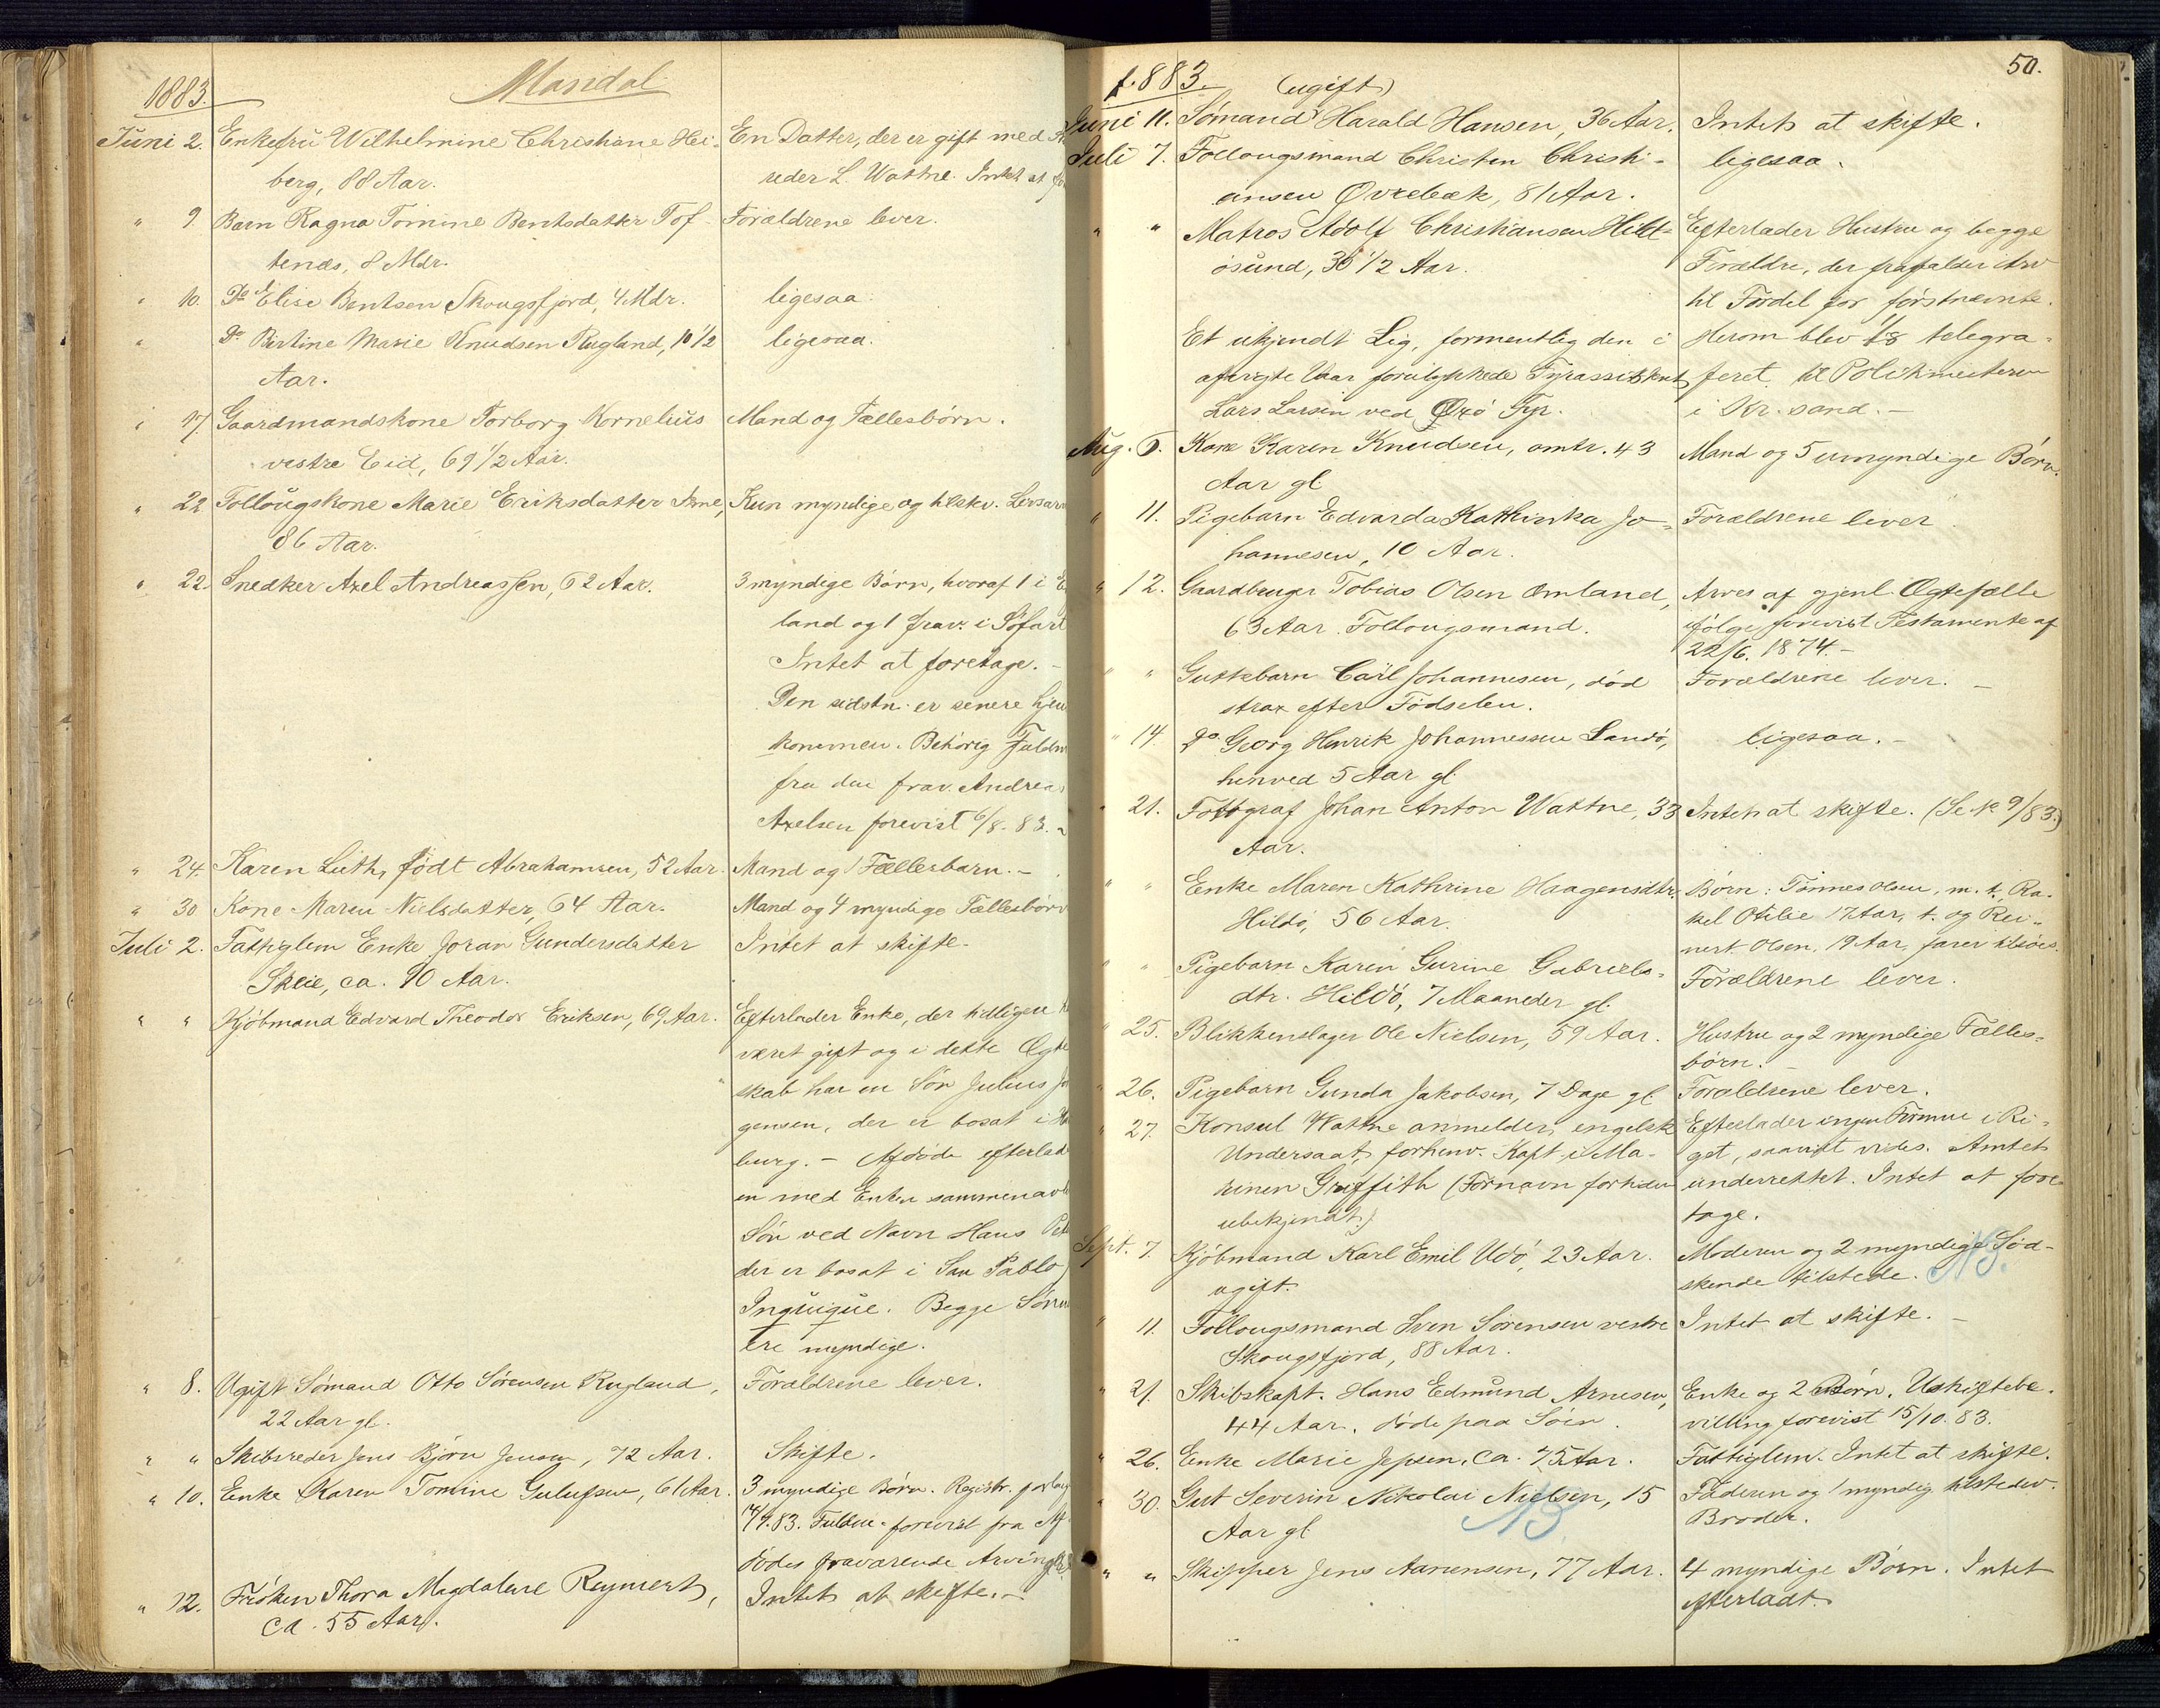 Mandal
1883.
Juni 2. Enkefru Wilhelmine Christiane Hei- En Datter, der er gift med
berg, 88 Aar. reder L. Wattne. Intet at
" 9. Barn Ragna Tomine Bentsdatter Tof- Forældrene lever.
tenæs, 8 Mdr.
" 10. Do Elise Bentsen Skougsfjord, 4 Mdr. ligesaa
" Do Birtine Marie Knudsen Rugland, 10 1/2 ligesaa.
Aar.
" 17. Gaardmandskone Torborg Kornelius Mand og Fællesbørn.
vestre Eid, 69 1/2 Aar.
" 22 Follougskone Marie Eriksdatter Ime, Kun myndige og tilstev. Livsarv
86 Aar.
" 22. Snedker Axel Andreassen, 62 Aar. 3 myndige Børn, hvoraf 1 i
land og 1 frav. i Søfart
Intet at foretage. -
Den sidstn. er senere hjem
kommen. Behørig Fuldm
fra den frav. Andreas
Axelsen forevist 6/8. 83. -
" 24. Karen Luth, født Abrahamsen, 52 Aar. Mand og 1 Fællesbarn. -
" 30 Kone Maren Nielsdatter, 64 Aar. Mand og 4 myndige Fællesbørn
Juli 2. Fattiglem Enke Joran Gundersdatter Intet at skifte.
Skeie, ca. 70 Aar.
" " Kjøbmand Edvard Theodor Eriksen, 69 Aar. Efterlader Enke, der tidligere
været gift og i dette Ægte
skab har en Søn Julius
gensen, der er bosat i
burg. - Afdøde efterlad
en med Enken sammenavlet
Søn ved Navn Hans
der er bosat i San Pablo
Inquique. Begge Sønner
ere myndige.
" 8. Ugift Sømand Otto Sørensen Rugland, Forældrene lever.
22 Aar gl.
" " Skibsreder Jens Bjørn Jensen, 72 Aar. Skifte.
" 10. Enke Karen Tomine Gulufsen, 61 Aar. 3 myndige Børn. Registr.
83. Fuldm. forevist fra Af-
dødes fraværende Arving
" 12. Frøken Thora Magdalene Reymert, Intet at skifte. -
ca. 55 Aar.
50.
1883. (ugift)
Juni 11. Sømand Harald Hansen, 36 Aar. Intet at skifte.
Juli 7. Follougsmand Christen Christi- ligesaa.
ansen Øvrebæk, 81 Aar.
" " Matros Adolf Christiansen Hille- Efterlader Hustru og begge
øsund, 30 1/2 Aar. Forældre, der frafalder Arv
til Fordel for førstnævnte.
Et ukjendt Lig, formentlig den i Herom blev telegra-
afvigte Vaar forulykkede Fyrassistent feret til Politimesteren
Lars Larsen ved Oxø Fyr. i Kr.sand. -
Aug. 8. Kone Karen Knudsen, omtr. 43 Mand og 5 umyndige Børn.
Aar gl.
" 11. Pigebarn Edvarda Kathinka Jo- Forældrene lever.
hannesen, 10 Aar.
" 12. Gaardbruger Tobias Olsen Omland, Arves af gjenl. Ægtefælle
63 Aar. Follougsmand. ifølge forevist Testamente af
22/6. 1874. -
" " Guttebarn Carl Johannesen, død Forældrene lever. -
strax efter Fødselen.
" 14. Do Georg Henrik Johannessen Landø, ligesaa. -
henved 5 Aar gl.
" 21. Fotograf Johan Anton Wattne, 33 Intet at skifte. (Se 9/83.)
Aar.
" " Enke Maren Kathrine Haagensdtr. Børn: Tønnes Olsen, m. t., Ra-
Hildø, 56 Aar. kel Otilie 17 Aar, t. og Rei-
nert Olsen, 19 Aar, farer tilsøes.
" " Pigebarn Karen Gurine Gabriels- Forældrene lever.
dtr. Hildø, 7 Maaneder gl.
" 25. Blikkenslager Ole Nielsen, 59 Aar. Hustru og 2 myndige Fælles-
børn. -
" 26. Pigebarn Gunda Jakobsen, 7 Dage gl. Forældrene lever.
" 27. Konsul Wattne anmelder, engelsk Efterlader ingen Formue i Ri-
Undersaat, forhenv. Kapt. i Ma- get, saavidt vides. Amtet
rinen Griffith (Fornavn fortiden underrettet. Intet at fore-
ubekjendt.) tage.
Sept. 7. Kjøbmand Karl Emil Udø, 23 Aar. Moderen og 2 myndige Sød-
ugift. skende tilstede. NB.
" 11. Follougsmand Sven Sørensen vestre Intet at skifte. -
Skougsfjord, 88 Aar.
" 21. Skibskapt. Hans Edmund Arnesen, Enke og 2 Børn. Uskiftebe-
44 Aar. døde paa Søen. villing forevist 15/10. 83.
" 26. Enke Marie Jepsen, ca. 75 Aar. Fattiglem. Intet at skifte.
" 30. Gut Severin Nikolai Nielsen, 15 Faderen og 1 myndig tilstedev.
Aar gl. NB Broder.
" " Skipper Jens Aanensen, 77 Aar. 4 myndige Børn. Intet
efterladt.